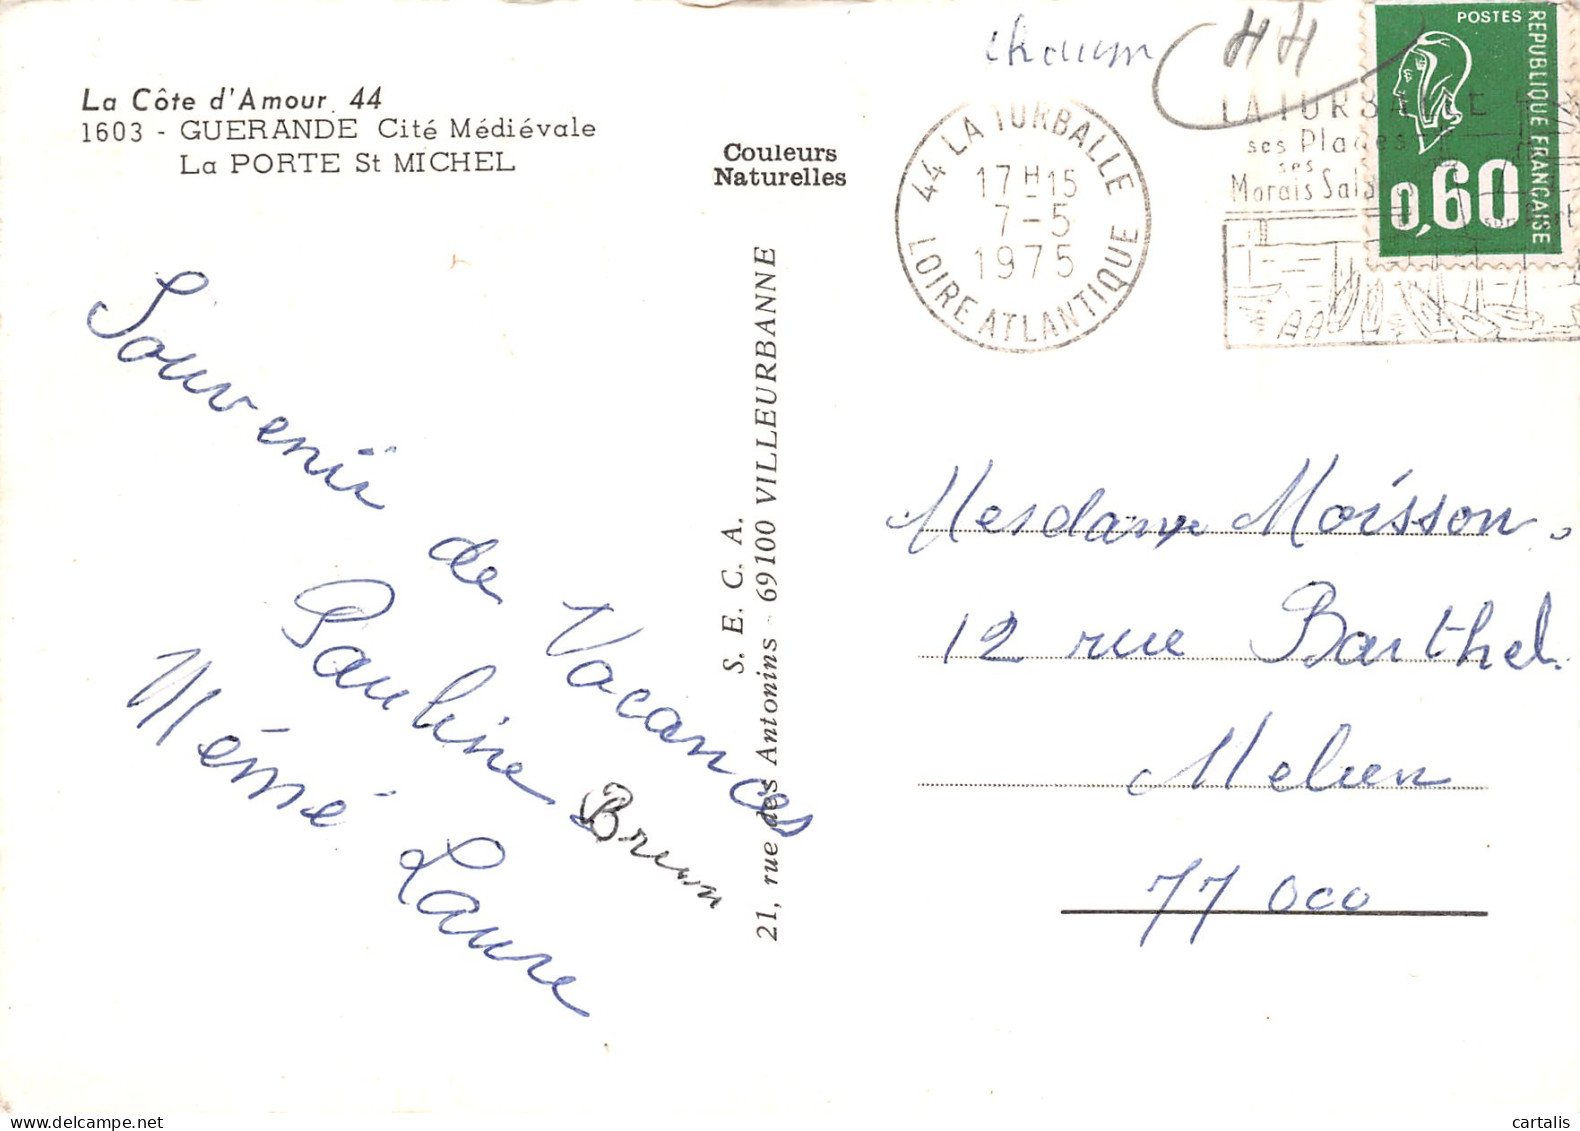 La Côte d'Amour. 44
1603 - GUERANDE Cité Médiévale
La PORTE St MICHEL
Couleurs
Naturelles
Souvenir
de Vacances
Pauline Brunn
Mémé Laure
S. E. C. A.
21, rue des Antonins - 69100 VILLEURBANNE
44 LA TURBALLE
17 H 15
7-5
1975
LOIRE ATLANTIQUE
LA TURBALLE
ses Plages
ses
Marais Sal
POSTES
REPUBLIQUE FRANÇAISE
0,60
Mesdam Moisson.
12 rue Barthel
Melun
77 000
cartalis.com